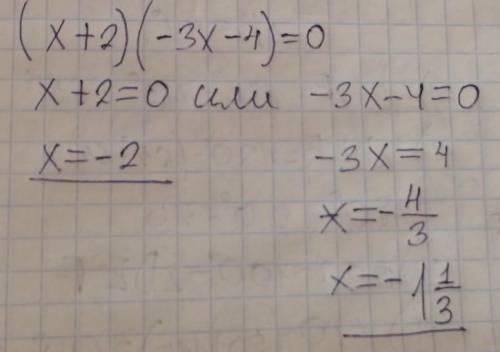 (x+2)(-3x-4)=0
x+2=0 или -3x-4=0
x=-2
-3x=4
x=-4/3
x=-1 1/3